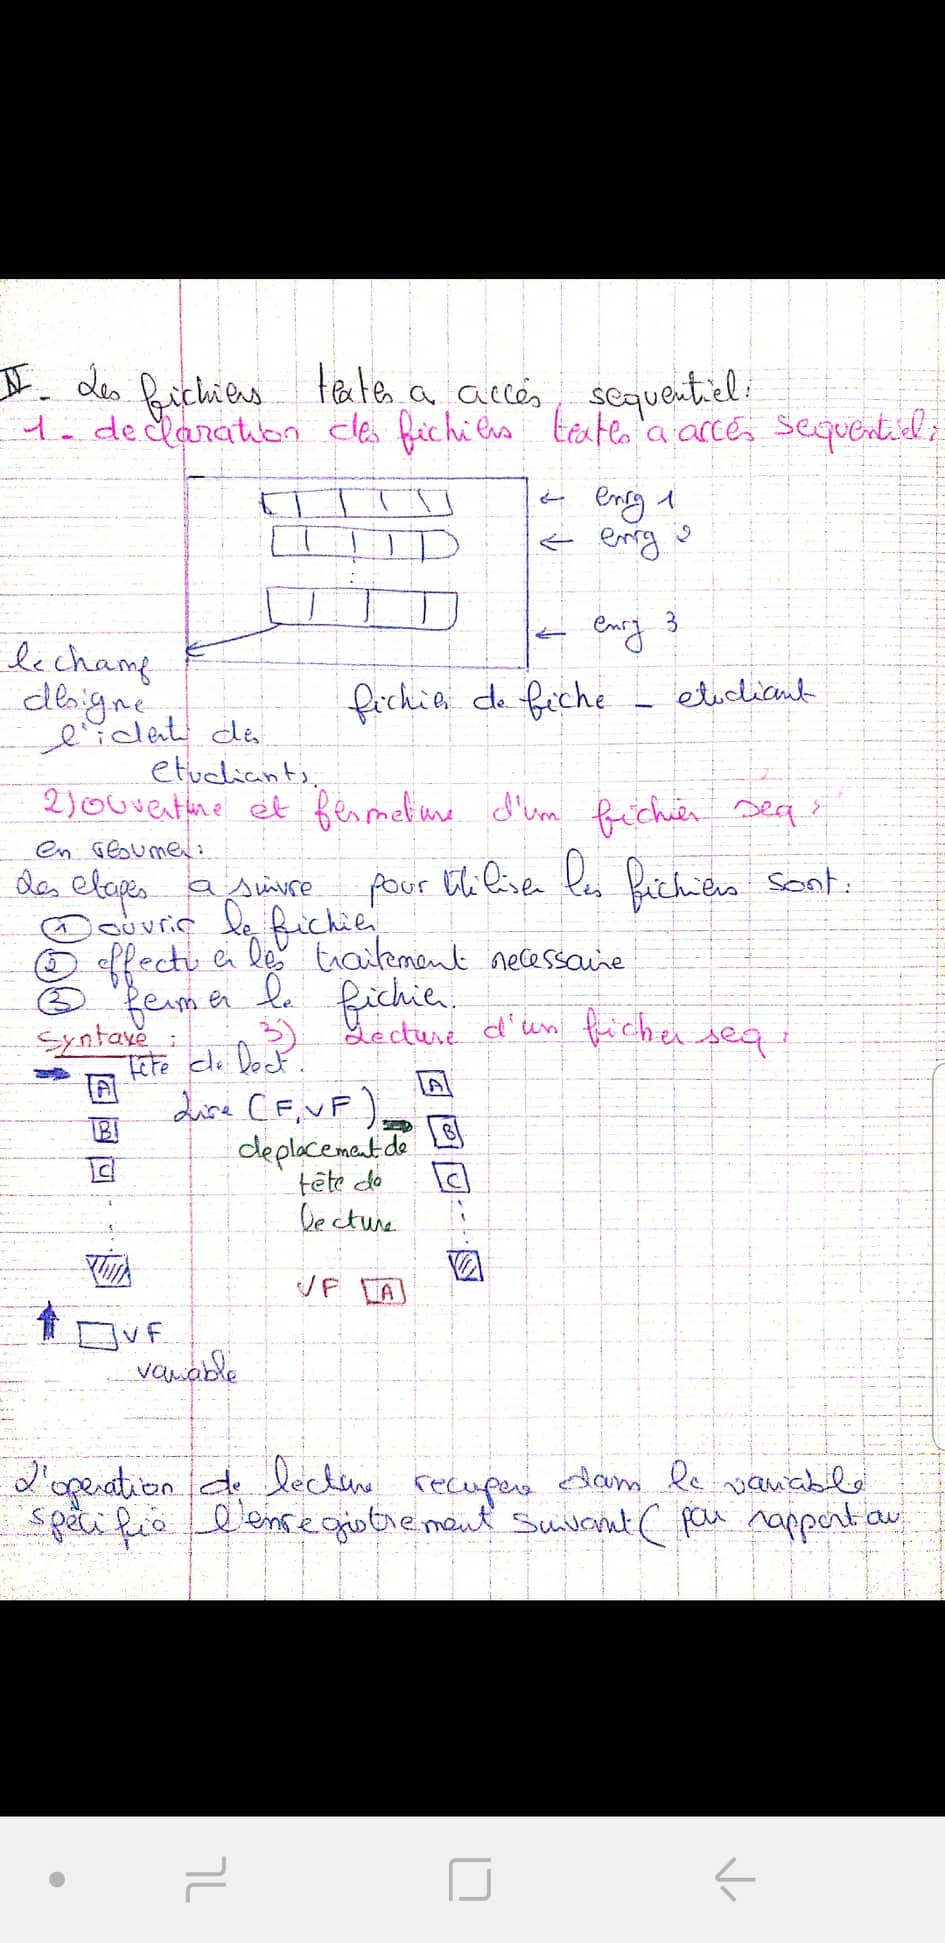 IV - Les fichiers texte a accés sequentiel:
1 - declaration des fichiers textes a accés sequentiel:
← enrg 1
← enrg 2
← enrg 3
le champ
designe
l'ident des
etudiants.
fichier de fiche - etudiant
2) ouverture et fermeture d'un fichier seq:
en resumer:
des etapes a suivre pour utiliser les fichiers sont:
① ouvrir le fichier
② effectuer les traitement necessaire
③ fermer le fichier.
Syntaxe : 3) Lecture d'un ficher seq:
tête de lect.
A
B
C
Lire (F, VF)
deplacement de
tête de
lecture
A
B
C
VF A
VF
variable
L'operation de lecture recupere dans le variable
spécifié l'enregistrement suivant ( par rapport au